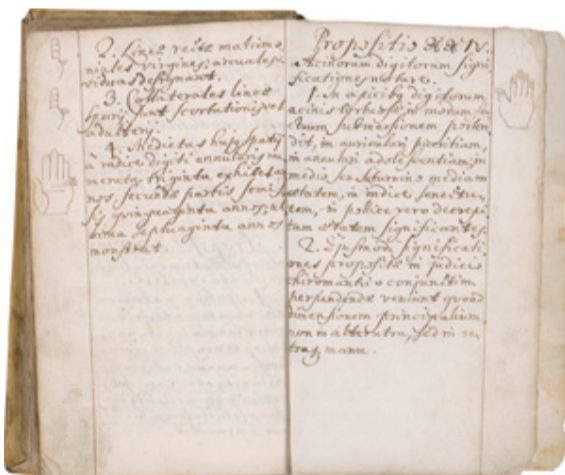 2. Lineæ rectæ matrimo-
niales virgines; arcuatæ
viduas designant.
3. Collaterales lineæ
spurij sunt scortationis vel
adulterij.
4. Medietas hujus spatij
à radice digiti annularis nu-
merata, triginta exhibet an-
nos, secunda partis semis-
sis quinquaginta annos; ul-
tima septuaginta annos
monstrat.
Propositio XXIV.
digitorum signi-
ficationes notare.
1. In apicibus digitorum
in modum
submersionem porten-
dit, in auriculari pueritiam,
in annulari adolescentiam, in
medio seu saturnio mediam
ætatem, in indice senectu-
tem, in pollice vero decrepi-
tam ætatem significantes.
2. Ejusmodi significati-
ones propositæ in judicio
chiromantico conjunctim
perpendendæ veniunt quoad
dimensionem principalium
non in alterutra, sed in u-
traq manu.